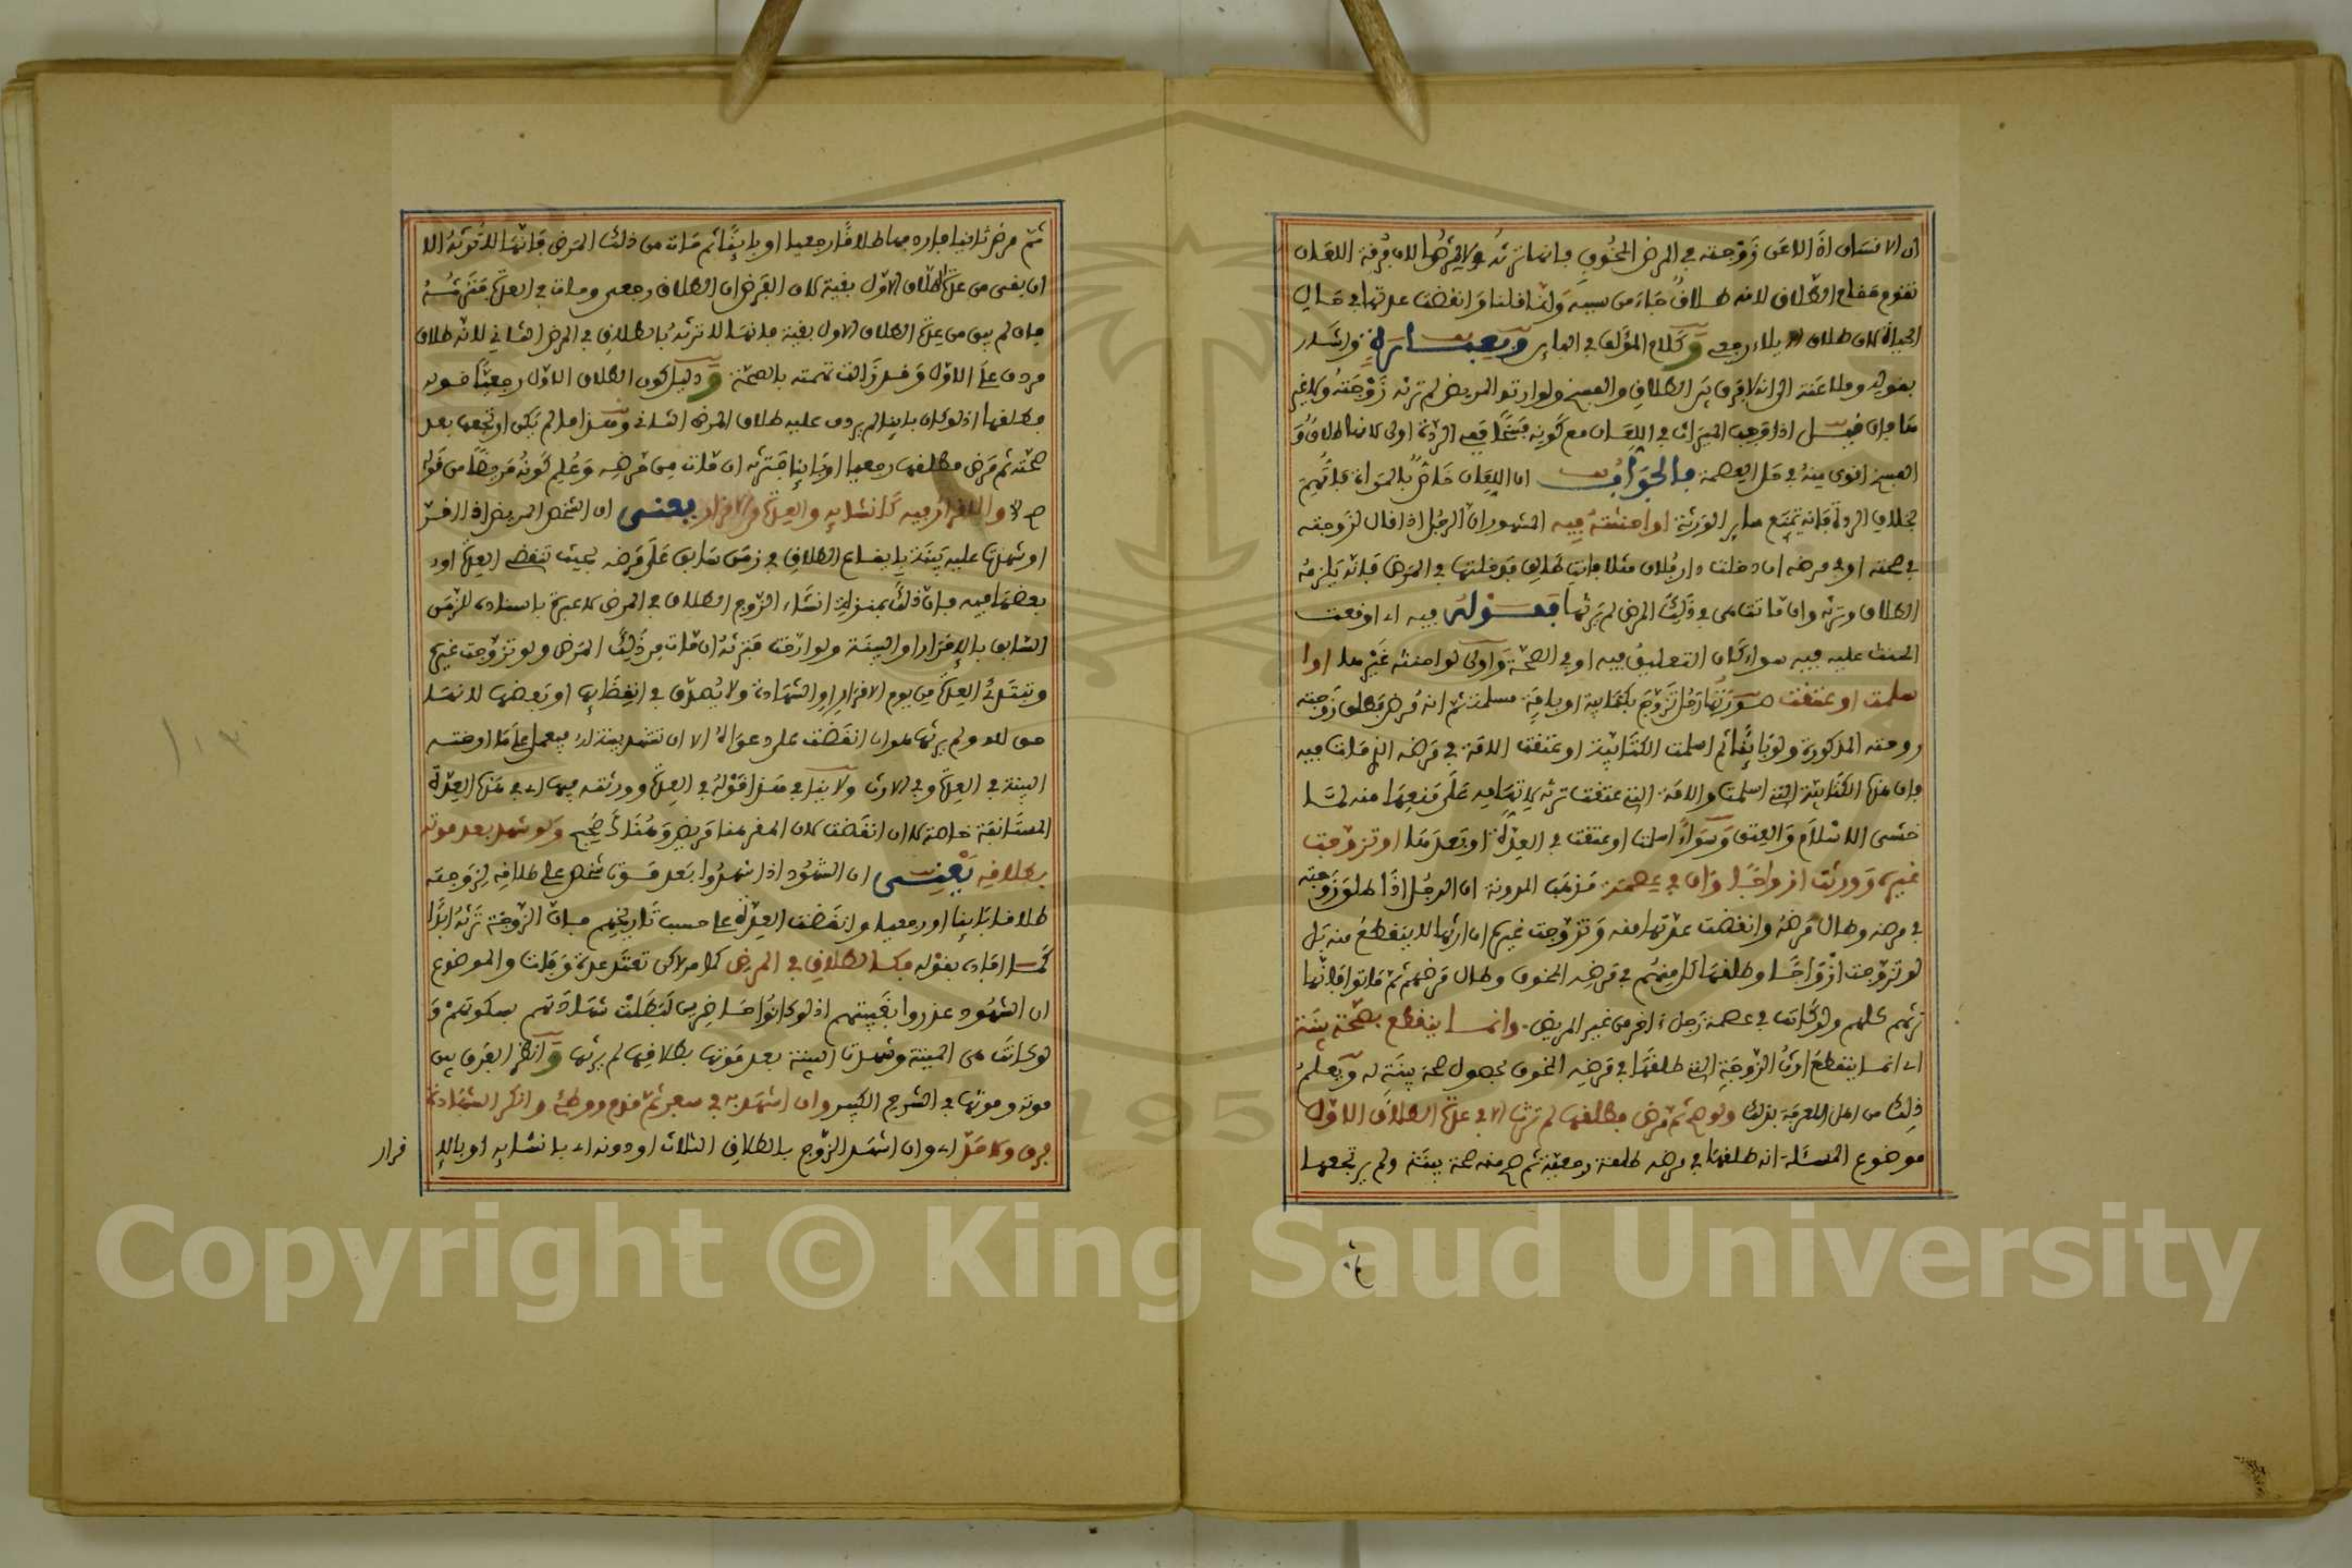 ان الانسان اذا لاعن زوجته في المرض المخوف فانها ترثه ولا يرثها لان فرقة اللعان
تقوم مقام الطلاق لانه طلاق جاء من سببه وانقضت عدتها في حال
الحياة كان طلاق بلاء رجعي و كلام المؤلف في البائن
بقوله وملاعنة الى انه لا فرق بين الطلاق والفسخ ولو ارتد المريض لم ترثه زوجته ولا غير
ها فان قيل اذا وجب الميراث في اللعان مع كونه فسخا ففي الردة اولى لانها طلاق و
الفسخ اقوى منه في حل العصمة فالجواب ان اللعان خاص بالمرأة فاتهم
بخلاف الردة فانه تمنع سائر الورثة او احنثته فيه المشهور ان الرجل اذا قال لزوجته
في صحته او في مرضه ان دخلت دار فلان مثلا فانت طالق فدخلتها في المرض فانه يلزمه
الطلاق وترثه وان ماتت هي في ذلك المرض لم يرثها فقوله فيه اي اوقعت
الحنث عليه فيه سواء كان التعليق فيه او في الصحة واولى لو احنثه غيرها او ا
سلمت او عتقت صورتها رجل تزوج بكتابية او بامة مسلمة ثم انه مرض فطلق زوجته
زوجته المذكورة ولو بائنا ثم اسلمت الكتابية او عتقت الامة في مرضه الذي مات فيه
فان هذه الكتابية التي اسلمت والامة التي عتقت ترثه لاتهامه على منعها منه لما
خشي الاسلام والعتق وسواء اسلمت او عتقت في العدة او بعدها او تزوجت
غيره وورثت ازواجا وان في عصمة مذهب المدونة ان الرجل اذا طلق زوجته
في مرضه وطال مرضه وانقضت عدتها منه وتزوجت غيره ان ارثها لا ينقطع منه بل
لو تزوجت ازواجا وطلقها كل منهم في مرضه المخوف وطال مرضهم ثم ماتوا فانها
ترثهم كلهم ولو كانت في عصمة رجل ءاخر من غير المريض وانما ينقطع بصحة بينة
اي انما ينقطع ارث الزوجة التي طلقها في مرضه المخوف بحصول صحة بينة له ويعلم
ذلك من اهل المعرفة بذلك ولو صح ثم مرض فطلقها لم ترث الا في عدة الطلاق الاول
موضوع المسئلة انه طلقها في مرضه طلقة رجعية ثم صح منه صحة بينة ولم يرتجعها
ثم مرض ثانيا فاردفها طلاقا رجعيا او بائنا ثم مات من ذلك المرض فانها لا ترثه الا
ان بقي من عدة الطلاق الاول بقية لان الفرض ان الطلاق رجعي ومات في العدة فترثه
فان لم يبق من عدة الطلاق الاول بقية فانها لا ترثه بالطلاق في المرض الثاني لانه طلاق
مردف على الاول وقد زالت تهمته بالصحة و دليل كون الطلاق الاول رجعيا قوله
فطلقها اذ لو كان بائنا لم يردف عليه طلاق المرض الثاني وهذا ما لم يكن ارتجعها بعد
صحته ثم مرض فطلقها رجعيا او بائنا فترثه ان مات من مرضه وعلم كونه مردفا من قوله
ص والاقرار فيه كانشائه والعدة من الاقرار يعني ان الشخص المريض اذا اقر
او شهدت عليه بينة بايقاع الطلاق في زمن سابق على مرضه بحيث تنقضي العدة او
بعضها فيه فان ذلك بمنزلة انشاء الزوج الطلاق في المرض ولا عبرة باسناده للزمن
السابق بالاقرار او البينة ولو ارخت فترثه ان مات من ذلك المرض ولو تزوجت غيره
وتبتدئ العدة من يوم الاقرار او الشهادة ولا يصدق في انقضائها او بعضها لانها
حق لله ولم يرثها هو ان انقضت على دعواه الا ان تشهد بينة له فيعمل على ما ارخته
البينة في العدة وفي الارث ولا ينافي هذا قوله في العدة وورثته فيها اي في هذه العدة
المستأنفة خاصة لان انقضت لان المقر هنا مريض وهناك صحيح ولو شهد بعد موته
بطلاقه يعني ان الشهود اذا شهدوا بعد موت شخص على طلاقه لزوجته
طلاقا بائنا او رجعيا وانقضت العدة على حسب تاريخهم فان الزوجة ترثه ابدا
كما افاده بقوله فكالطلاق في المرض كما مر لاكن تعتد عدة وفاة والموضوع
ان الشهود عذروا بغيبتهم اذ لو كانوا حاضرين لبطلت شهادتهم بسكوتهم و
لو كانت هي الميتة وشهدت البينة بعد موتها بطلاقها لم يرثها و انظر الفرق بين
موته وموتها في الشرح الكبير وان اشهد به في سفر ثم قدم ووطئ وانكر الشهادة
فرق ولا حد اي وان اشهد الزوج بالطلاق الثلاث او دونه اي بانشائه او بالا
قرار